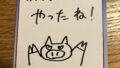 やったね！